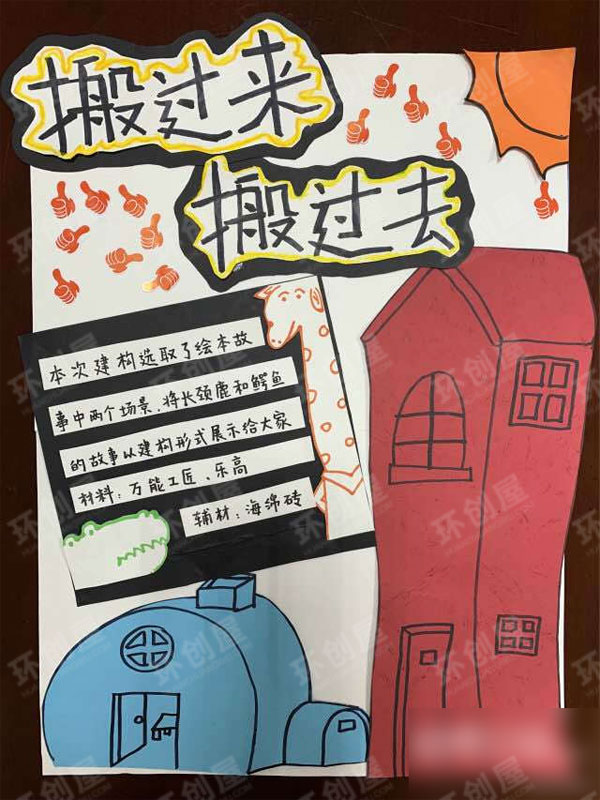 搬过来
搬过去
本次建构选取了绘本故
事中两个场景,将长颈鹿和鳄鱼
的故事以建构形式展示给大家
材料:万能工匠、乐高
辅材:海绵砖
环创屋